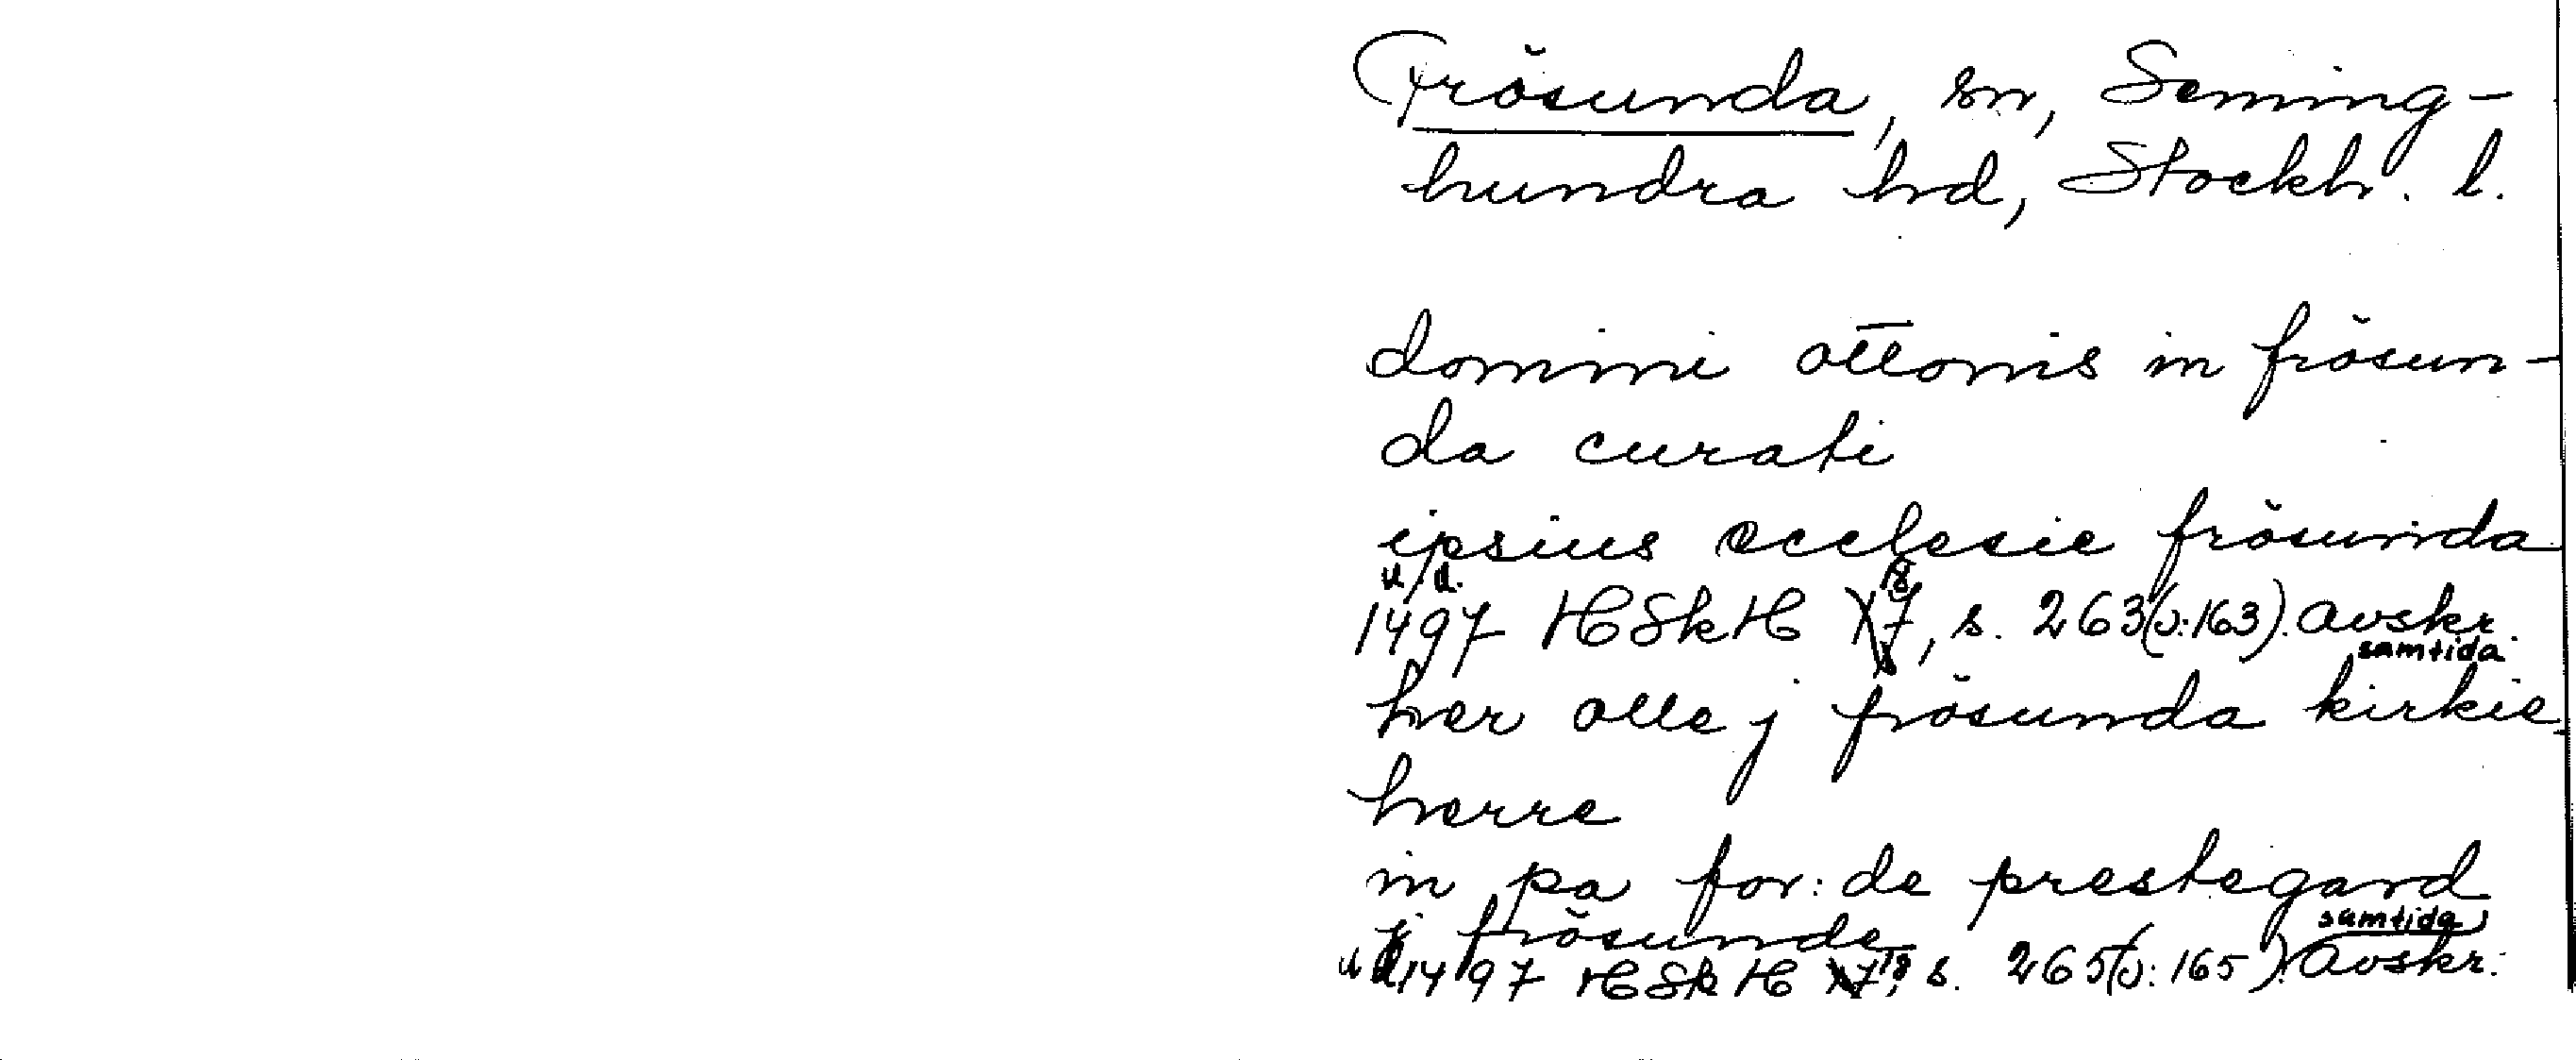 Frösunda, sn, Seming-
hundra hd, Stockh. l.
domini ollonis in frösun-
da curati
ipsius ecclesie frösunda
u. d.
1497 HSkH 18, s. 263 (ɔ: 163). Avskr.
samtida
her olle j frösunda kirkie-
herre
in pa for:de prestegard
j frösunde
samtida
u d 1497 HSkH 18, s. 265 (ɔ: 165). Avskr.